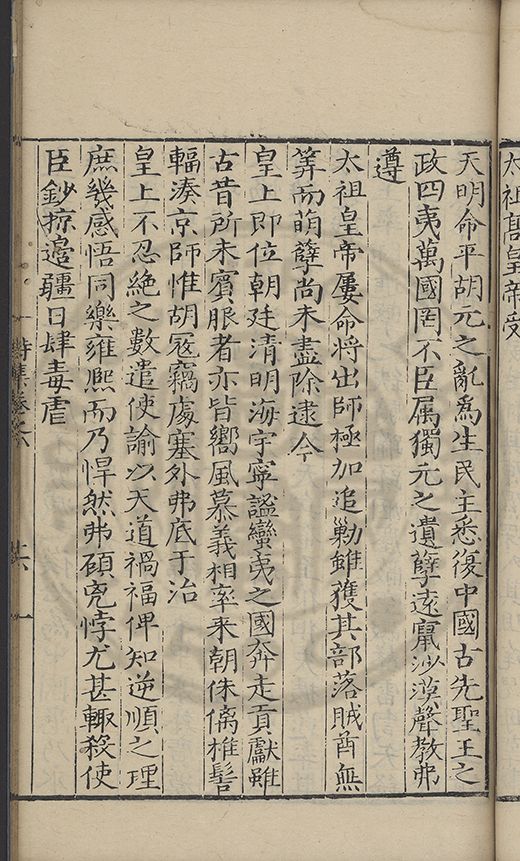 太祖高皇帝受
天明命平胡元之亂爲生民主悉復中國古先聖王之
政四夷萬國罔不臣属獨元之遺孽遠竄沙漠聲教弗
遵
太祖皇帝屢命將出師極加追勦雖獲其部落賊酋無
筭而萌孽尚未盡除逮今
皇上即位朝廷清明海宇寧謐蠻夷之國奔走貢獻雖
古昔所未賓服者亦皆嚮風慕義相率来朝侏𠌯椎髻
輻湊京師惟胡冦竊處塞外弗底于治
皇上不忍絶之數遣使諭以天道禍福俾知逆順之理
庶幾感悟同樂雍熈而乃悍然弗碩兇悖尤甚輙殺使
臣鈔掠邉疆日肆毒虐
詩集卷六
六